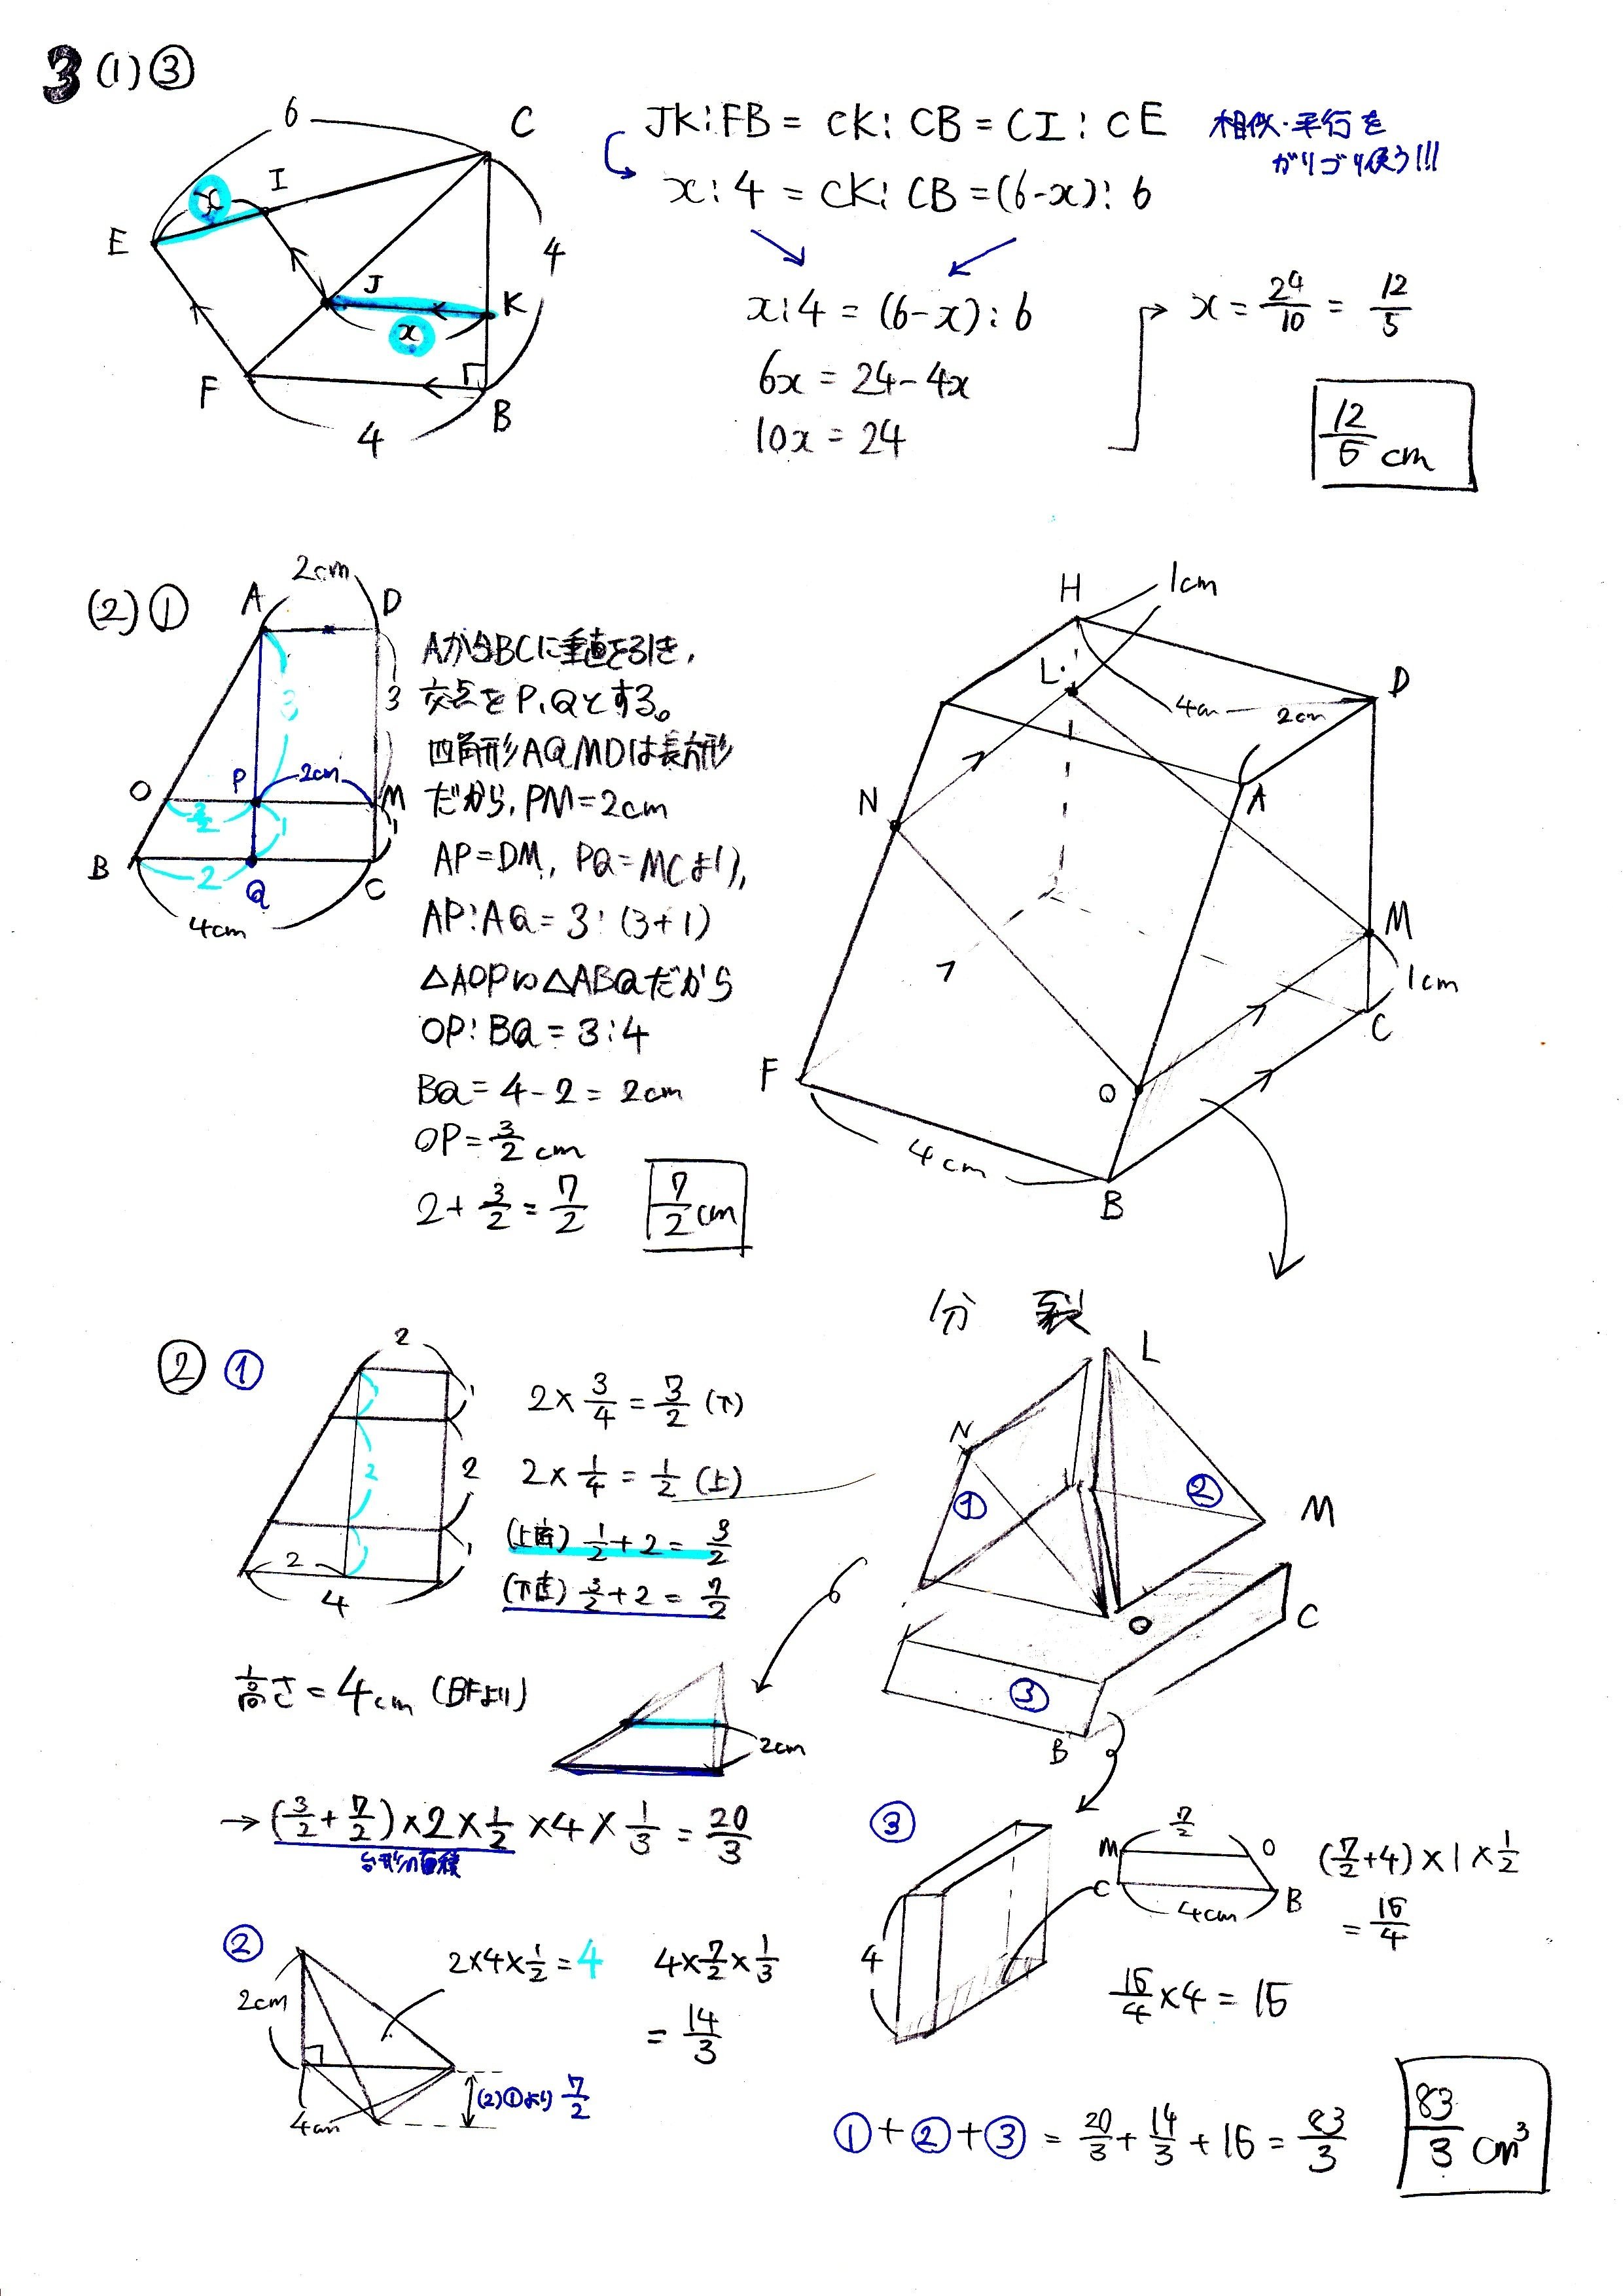 3 (1) ③
6
C
I
x
E
J
K
4
x
F
B
4
JK:FB = CK:CB = CI:CE
相似・平行を
ガリゴリ使う!!!
x:4 = CK:CB = (6-x):6
x:4 = (6-x):6
6x = 24-4x
10x = 24
x = 24/10 = 12/5
12/5 cm
(2) ①
2cm
A
D
3
3
O
P
2cm
M
3/2
1
1
B
2
Q
C
4cm
AからBCに垂直を引き,
交点をP,Qとする。
四角形AQMDは長方形
だから, PM=2cm
AP=DM, PQ=MCより,
AP:AQ = 3:(3+1)
△AOP∽△ABQだから
OP:BQ = 3:4
BQ = 4-2 = 2cm
OP = 3/2 cm
2+3/2 = 7/2
7/2 cm
H
1cm
L
D
4cm
2cm
N
A
M
1cm
C
F
O
4cm
B
分裂
② ①
2
1
2
2
1
2
4
2×3/4 = 3/2 (下)
2×1/4 = 1/2 (上)
(上底) 1/2+2 = 3/2
(下底) 3/2+2 = 7/2
高さ=4cm (BFより)
2cm
→(3/2+7/2)×2×1/2×4×1/3 = 20/3
台形の面積
L
N
①
②
M
O
C
③
B
②
2cm
4cm
2×4×1/2=4
4×7/2×1/3
= 14/3
(2)①より 7/2
③
4
7/2
M
O
C
4cm
B
(7/2+4)×1×1/2
= 15/4
15/4×4 = 15
①+②+③ = 20/3+14/3+15 = 83/3
83/3 cm³